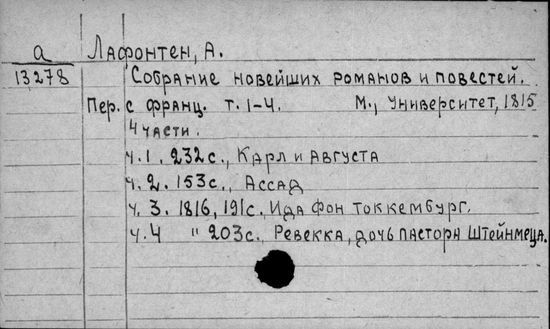 а Лафонтен, А.
13278 Собрание новейших романов и повестей.
Пер. с франц. т. 1-4. М., Университет, 1815
4 части.
ч. 1. 232с., Карл и Августа
ч. 2. 153с., Ассад
ч. 3. 1816, 191с. Ида фон Токкембург.
ч. 4 " 203с., Ревекка, дочь пастора Штейнмеца.